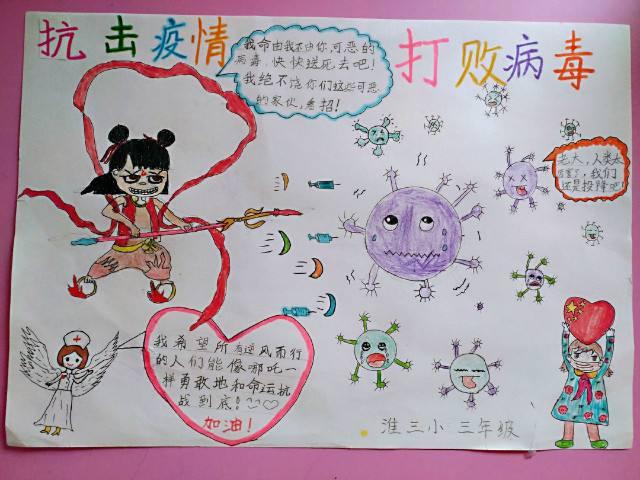 抗击疫情 打败病毒
我命由我不由你,可恶的
病毒,快快送死去吧!
我绝不饶你们这些可恶
的家伙,看招!
老大,人类太
厉害了,我们
还是投降吧!
我希望所有逆风而行
的人们能像哪吒一
样勇敢地和命运抗
战到底!
加油!
淮三小 三年级